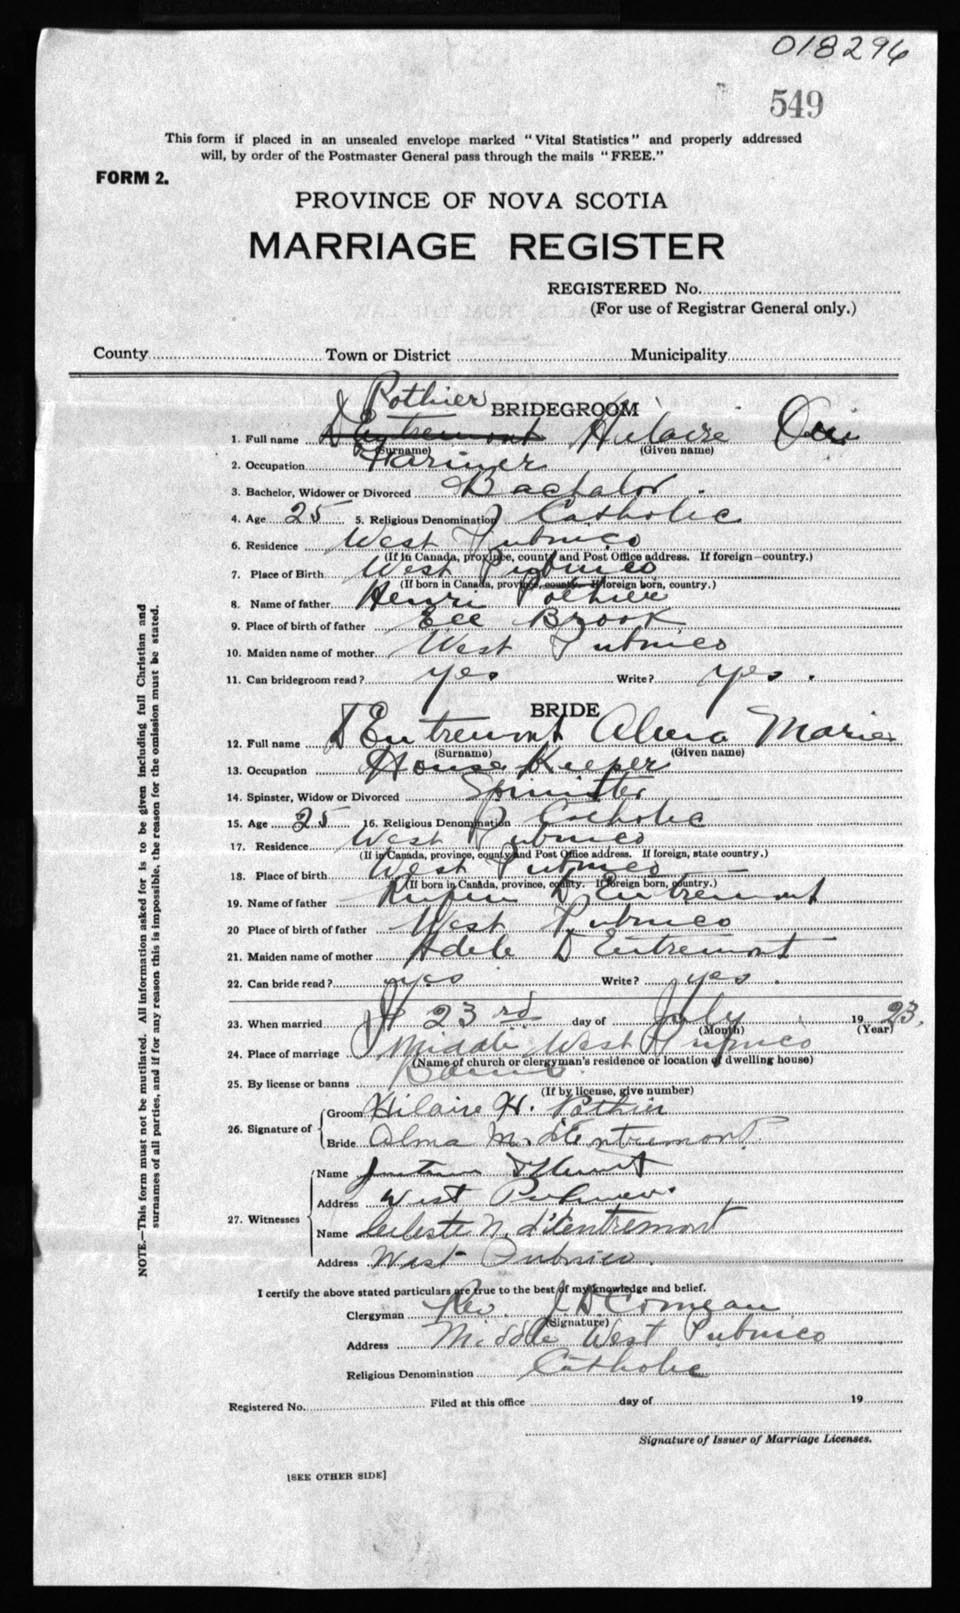 018296
549
This form if placed in an unsealed envelope marked "Vital Statistics" and properly addressed
will, by order of the Postmaster General pass through the mails "FREE."
FORM 2.
PROVINCE OF NOVA SCOTIA
MARRIAGE REGISTER
REGISTERED No.
(For use of Registrar General only.)
County Town or District Municipality
Pothier
BRIDEGROOM
1. Full name D'Entremont Hilaire
(Surname) (Given name)
2. Occupation
3. Bachelor, Widower or Divorced Bachalor.
4. Age 25 5. Religious Denomination Catholic
6. Residence West Pubnico
(If in Canada, province, county and Post Office address. If foreign—country.)
7. Place of Birth West Pubnico
(If born in Canada, province, county. If foreign born, country.)
8. Name of father Henri Pothier
9. Place of birth of father Eel Brook
10. Maiden name of mother West Pubnico
11. Can bridegroom read? yes Write? yes.
BRIDE
12. Full name D'Entremont Marie
(Surname) (Given name)
13. Occupation House Keeper
14. Spinster, Widow or Divorced Spinster
15. Age 25 16. Religious Denomination Catholic
17. Residence West Pubnico
(If in Canada, province, county and Post Office address. If foreign, state country.)
18. Place of birth West Pubnico
(If born in Canada, province, county. If foreign born, country.)
19. Name of father Rufin D'Entremont
20 Place of birth of father West Pubnico
21. Maiden name of mother Adele D'Entremont
22. Can bride read? yes Write? yes.
23. When married 23rd day of July 1923.
(Month) (Year)
24. Place of marriage Middle West Pubnico
(Name of church or clergyman's residence or location of dwelling house)
25. By license or banns Banns
(If by license, give number)
26. Signature of Groom Hilaire H. Pothier
Bride Alma M. d'Entremont
27. Witnesses
Name
Address West Pubnico.
Name Celeste N. d'Entremont
Address West Pubnico.
I certify the above stated particulars are true to the best of my knowledge and belief.
Clergyman Rev. J. D. Comeau
(Signature)
Address Middle West Pubnico
Religious Denomination Catholic
Registered No. Filed at this office day of 19
Signature of Issuer of Marriage Licenses.
[SEE OTHER SIDE]
NOTE.—This form must not be mutilated. All information asked for is to be given including full Christian and
surnames of all parties, and if for any reason this is impossible, the reason for the omission must be stated.